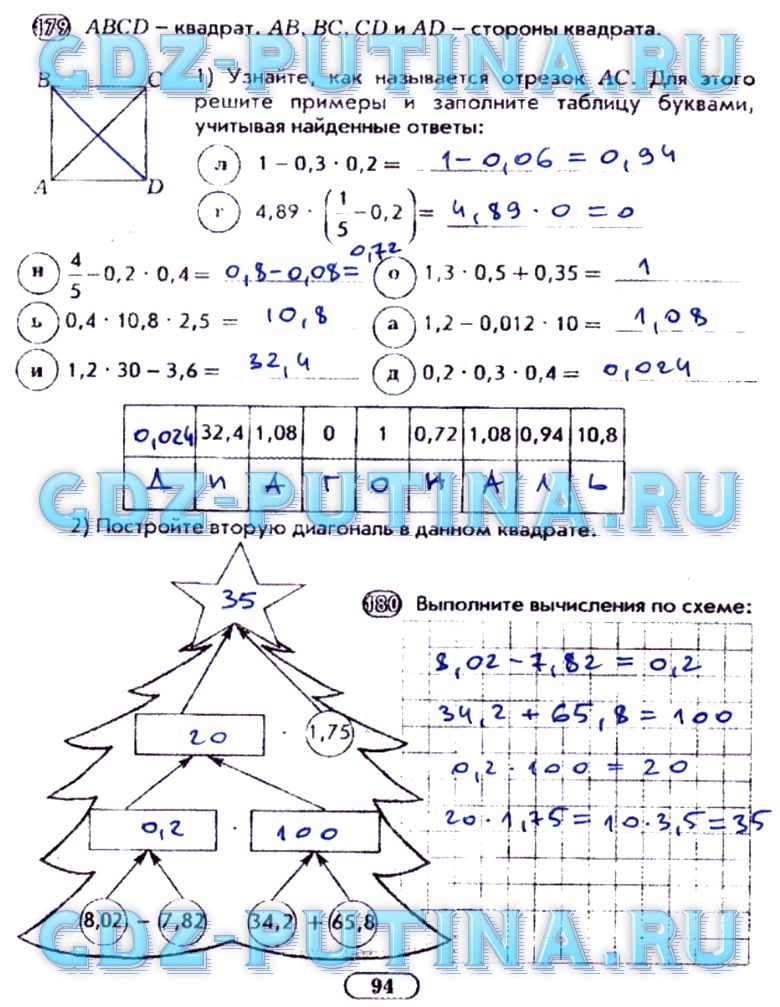 179 ABCD – квадрат. AB, BC, CD и AD – стороны квадрата.
GDZ-PUTINA.RU
B C
A D
1) Узнайте, как называется отрезок AC. Для этого
решите примеры и заполните таблицу буквами,
учитывая найденные ответы:
л 1 – 0,3 · 0,2 = 1 - 0,06 = 0,94
г 4,89 · (1/5 – 0,2) = 4,89 · 0 = 0
н 4/5 – 0,2 · 0,4 = 0,8 - 0,08 = 0,72
о 1,3 · 0,5 + 0,35 = 1
ь 0,4 · 10,8 · 2,5 = 10,8
а 1,2 – 0,012 · 10 = 1,08
и 1,2 · 30 – 3,6 = 32,4
д 0,2 · 0,3 · 0,4 = 0,024
0,024 32,4 1,08 0 1 0,72 1,08 0,94 10,8
Д И А Г О Н А Л Ь
GDZ-PUTINA.RU
2) Постройте вторую диагональ в данном квадрате.
35
20 · 1,75
0,2 · 100
8,02 – 7,82 34,2 + 65,8
180 Выполните вычисления по схеме:
8,02 - 7,82 = 0,2
34,2 + 65,8 = 100
0,2 · 100 = 20
20 · 1,75 = 10 · 3,5 = 35
GDZ-PUTINA.RU
94